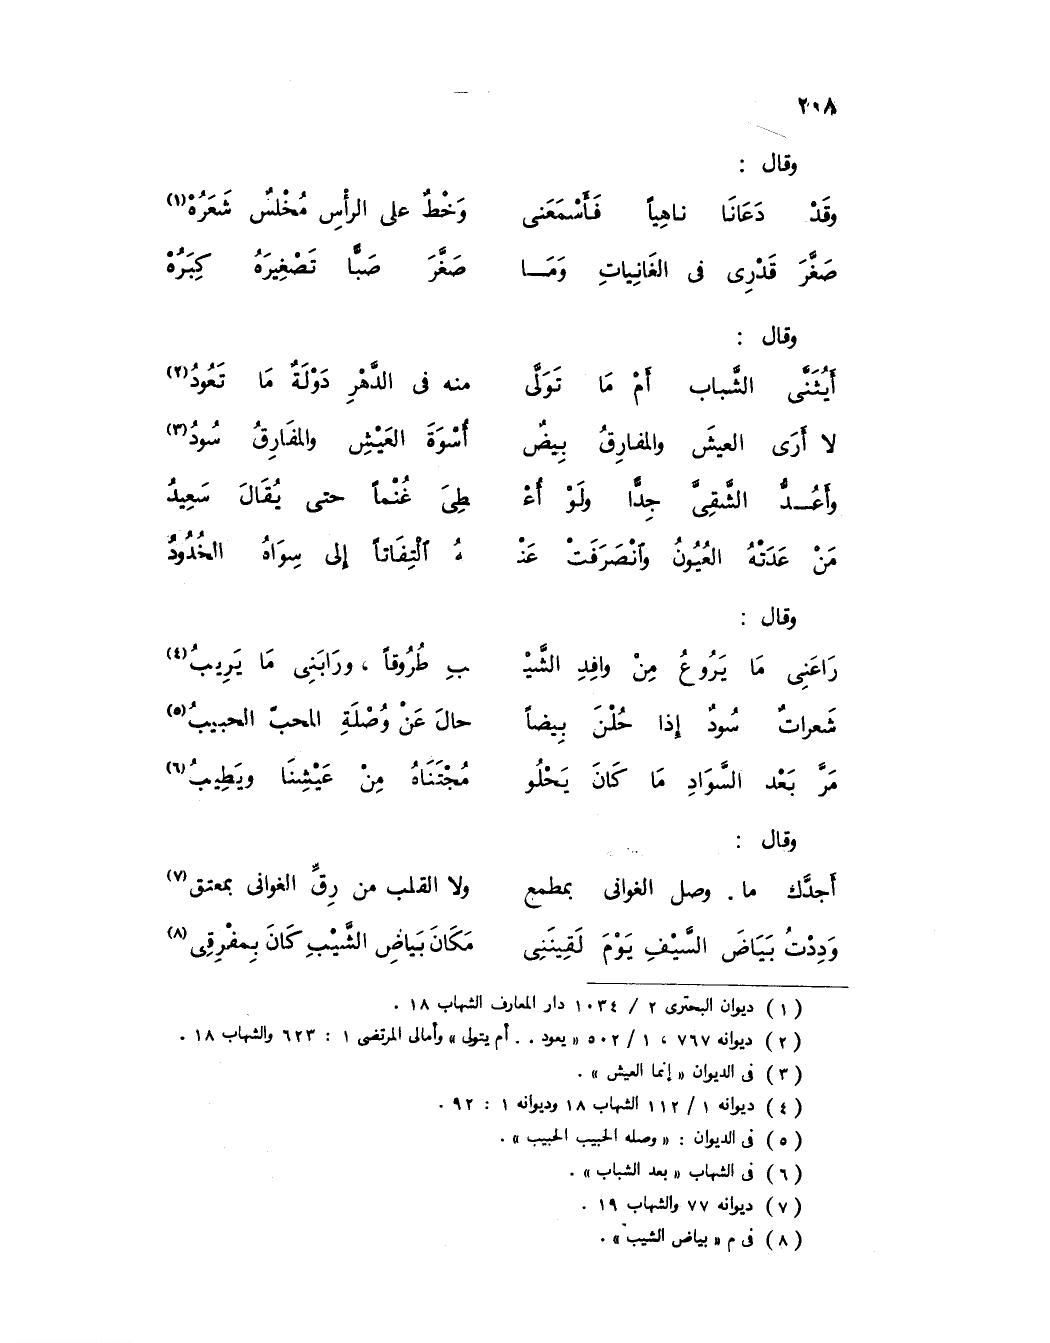 ٢٠٨
وقال :
وقَدْ دَعَانَا ناهِياً فَأَسْمَعَنى وَخْطٌ على الرأْسِ مُخْلسٌ شَعَرُهْ(١)
صَغَّرَ قَدْرِى فى الغَانِياتِ وَمَـــا صَغَّرَ صَبًّا تَصْغِيرَهُ كِبَرُهْ
وقال :
أَيُثَنَّى الشَّباب أَمْ مَا تَوَلَّى منه فى الدَّهْرِ دَوْلَةٌ مَا تَعُودُ(٢)
لا أَرَى العيشَ والمفارِقُ بِيضٌ أُسْوَةَ العَيْشِ والمفَارِقُ سُودُ(٣)
وأَعُـــدُّ الشَّقِىَّ جِدًّا ولَوْ أُعْ طِىَ غُنْماً حتى يُقَالَ سَعِيدُ
مَنْ عَدَتْهُ العُيُونُ وَٱنْصَرَفَتْ عَنْ هُ ٱلْتِفَاتاً إلى سِوَاهُ الخُدُودُ
وقال :
رَاعَنِى مَا يَرُوعُ مِنْ وافِدِ الشَّيْ بِ طُرُوقاً ، ورَابَنِى مَا يَرِيبُ(٤)
شَعراتٌ سُودٌ إذا حُلْنَ بِيضاً حالَ عَنْ وُصْلَةِ المحبّ الحبيبُ(٥)
مَرَّ بَعْد السَّوَادِ مَا كَانَ يَحْلُو مُجْتَنَاهُ مِنْ عَيْشِنَا ويَطِيبُ(٦)
وقال :
أَجدَّك ما . وصل الغوانى بمطمع ولا القلب من رِقِّ الغوانى بمعتق(٧)
وَدِدْتُ بَيَاضَ السَّيْفِ يَوْمَ لَقِينَنِى مَكَانَ بَياضِ الشَّيْبِ كَانَ بِمفْرِقِى(٨)
( ١ ) ديوان البحترى ٢ / ١٠٣٤ دار المعارف الشهاب ١٨ .
( ٢ ) ديوانه ٧٦٧ ، ١ / ٥٠٢ « يعود . . أم يتولى » وأمالى المرتضى ١ : ٦٢٣ والشهاب ١٨ .
( ٣ ) فى الديوان « إنما العيش » .
( ٤ ) ديوانه ١ / ١١٢ الشهاب ١٨ وديوانه ١ : ٩٢ .
( ٥ ) فى الديوان : « وصله الحبيب الحبيب » .
( ٦ ) فى الشهاب « بعد الشباب » .
( ٧ ) ديوانه ٧٧ والشهاب ١٩ .
( ٨ ) فى م « بياض الشيب » .